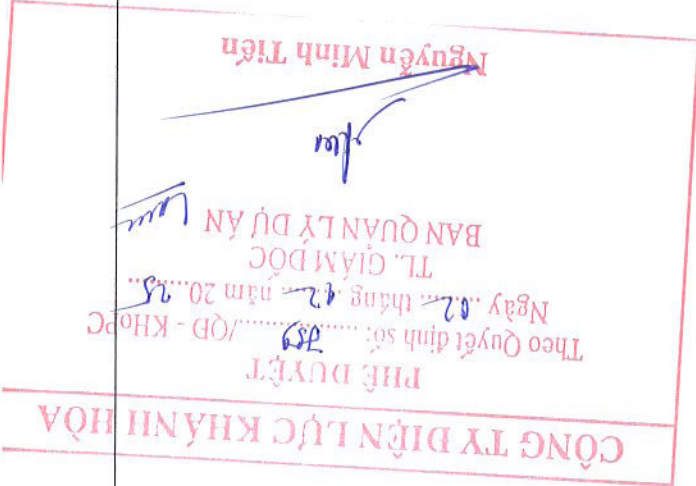 CÔNG TY ĐIỆN LỰC KHÁNH HÒA
PHÊ DUYỆT
Theo Quyết định số: .......... /QĐ - KHoPC
Ngày 02 tháng 12 năm 2025
TL. GIÁM ĐỐC
BAN QUẢN LÝ DỰ ÁN
Nguyễn Minh Tiến